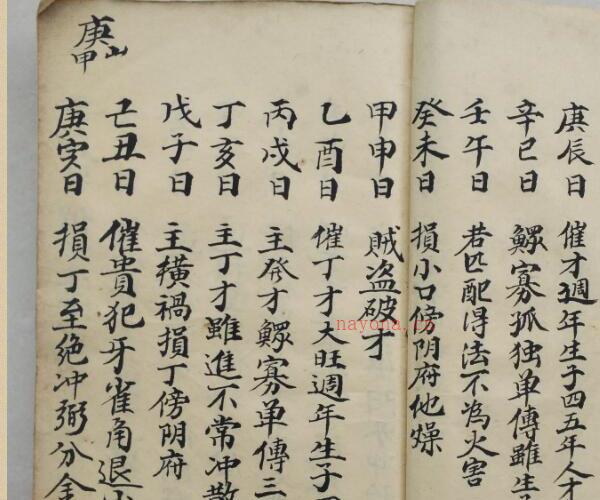 庚辰日 催才週年生子四五年人才
辛巳日 鰥寡孤独单傳雖生子
壬午日 若匹配得法不為火害
癸未日 損小口傍阴府他燥
甲申日 賊盗破才
乙酉日 催丁才大旺週年生子
丙戍日 主發才鰥寡单傳三
丁亥日 主丁才雖進不常冲散
戊子日 主横禍損丁傍阴府
己丑日 催貴犯牙雀角退
庚寅日 損丁至绝冲弼分金
庚山甲
nayona.cn